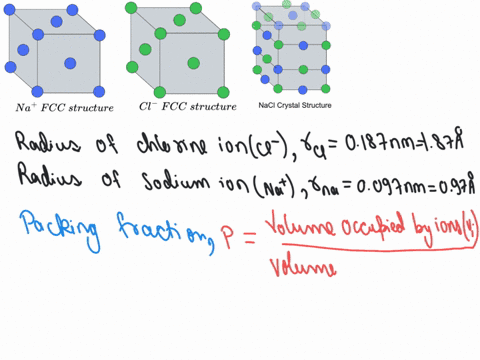 Na⁺ FCC structure Cl⁻ FCC structure NaCl Crystal Structure
Radius of chlorine ion (Cl⁻), r_Cl = 0.187nm = 1.87Å
Radius of sodium ion (Na⁺), r_na = 0.097nm = 0.97Å
Packing fraction, P = Volume occupied by ions (Vi
volume